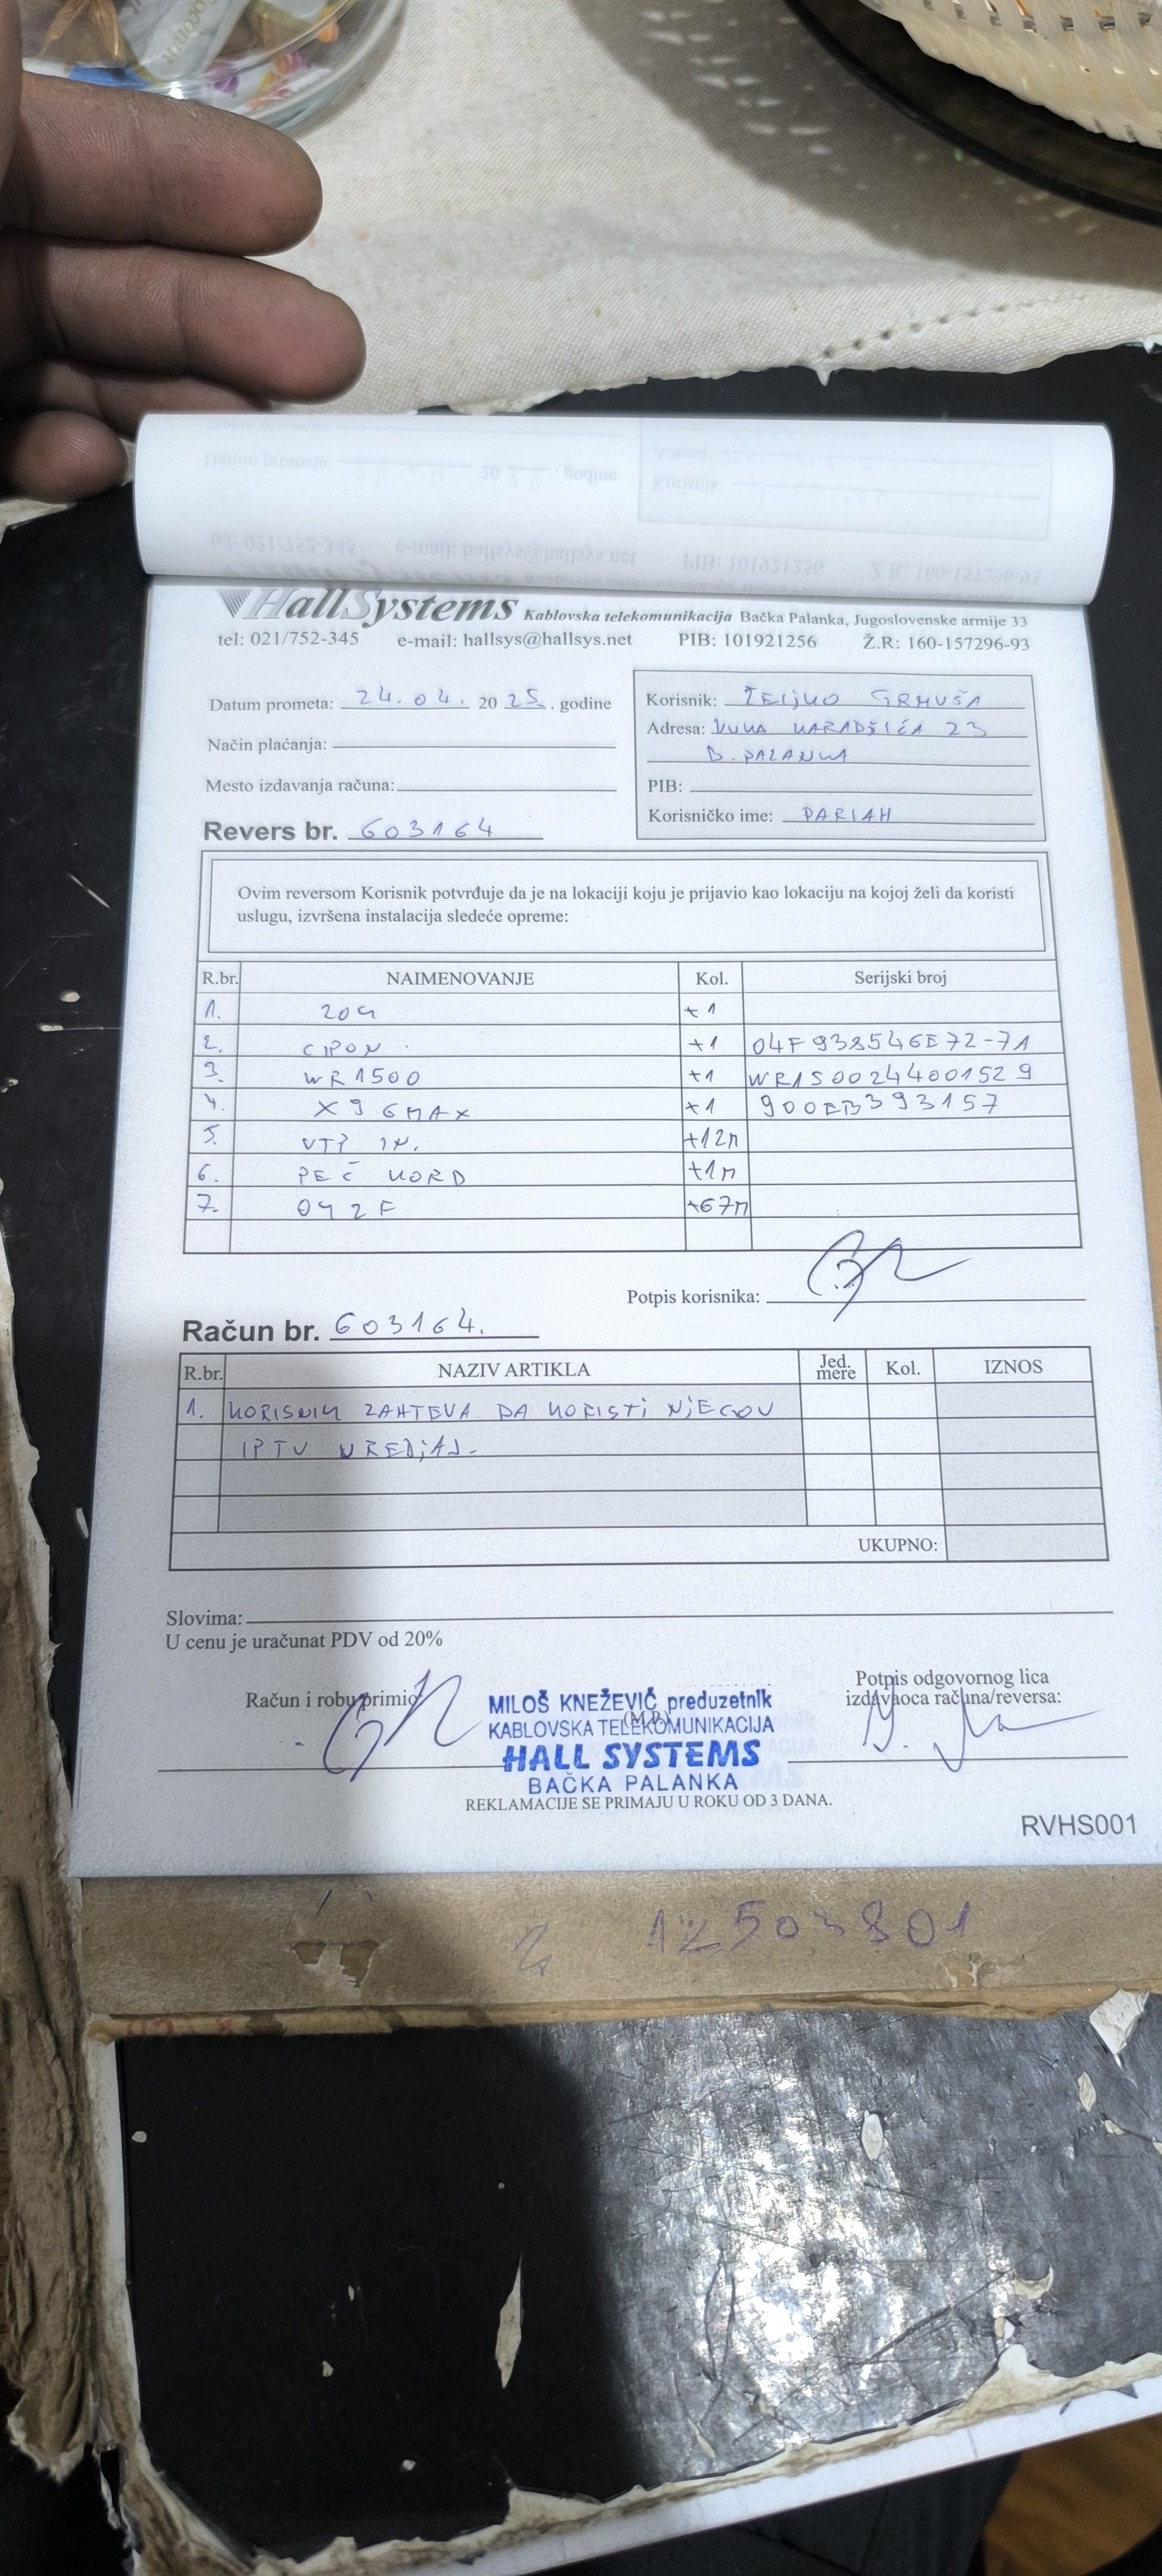 HallSystems Kablovska telekomunikacija Bačka Palanka, Jugoslovenske armije 33
tel: 021/752-345 e-mail: hallsys@hallsys.net PIB: 101921256 Ž.R: 160-157296-93
Datum prometa: 24.04. 20 25. godine
Način plaćanja:
Mesto izdavanja računa:
Revers br. 603164
Korisnik: ŽELJKO GRMUŠA
Adresa: VUKA KARADŽIĆA 23
B. PALANKA
PIB:
Korisničko ime: PARIAH
Ovim reversom Korisnik potvrđuje da je na lokaciji koju je prijavio kao lokaciju na kojoj želi da koristi
uslugu, izvršena instalacija sledeće opreme:
R.br. NAIMENOVANJE Kol. Serijski broj
1. ZOK +1
2. CIPON +1 04F938546E72-71
3. WR1500 +1 WR1500244001529
4. X96MAX +1 900EB393157
5. UTP IN. +12m
6. PEČ KORD +1m
7. OK 2F +67m
Potpis korisnika:
Račun br. 603164.
R.br. NAZIV ARTIKLA Jed. mere Kol. IZNOS
1. KORISNIK ZAHTEVA DA KORISTI NJEGOV
IPTV UREDJAJ.
UKUPNO:
Slovima:
U cenu je uračunat PDV od 20%
Račun i robu primio
(M.P.)
MILOŠ KNEŽEVIĆ preduzetnik
KABLOVSKA TELEKOMUNIKACIJA
HALL SYSTEMS
BAČKA PALANKA
Potpis odgovornog lica
izdavaoca računa/reversa:
REKLAMACIJE SE PRIMAJU U ROKU OD 3 DANA.
RVHS001